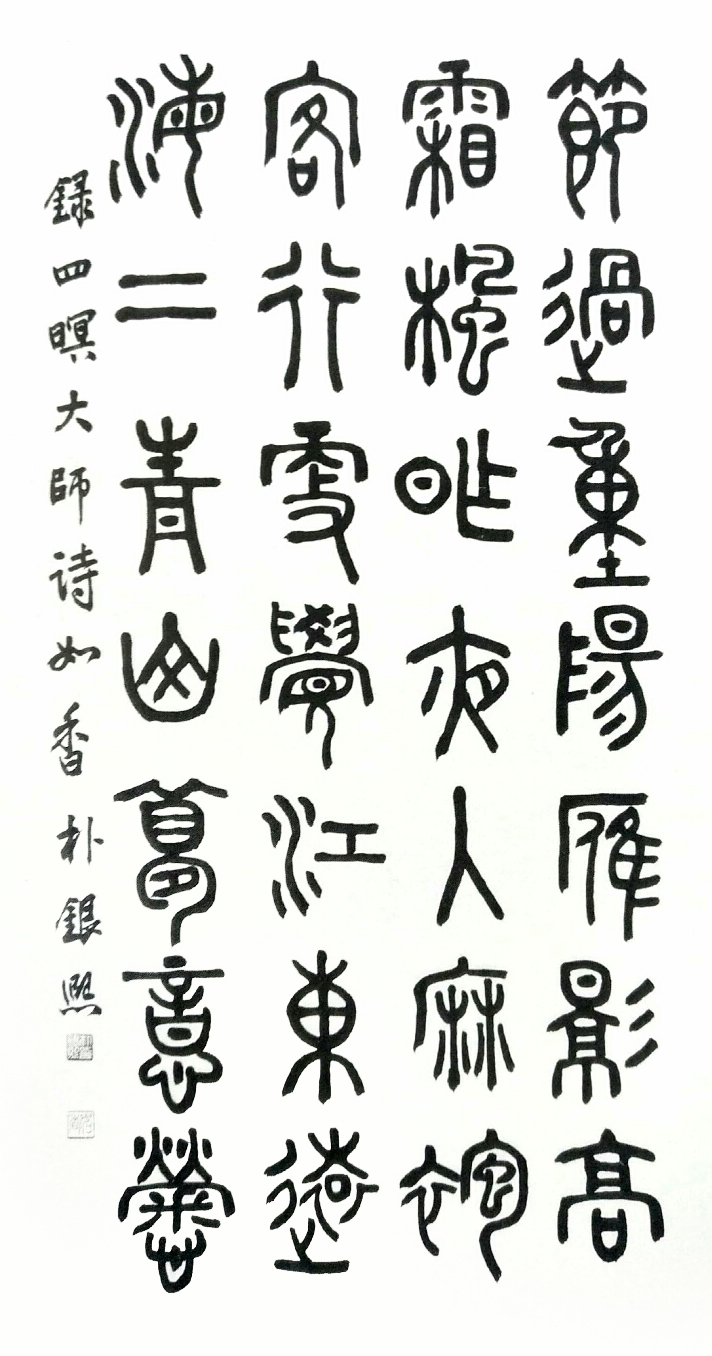 節過重陽雁影高
霜楓昨夜入麻袍
客行更覺江東遠
海上青山萬意勞
錄四暝大師詩如香朴銀熙